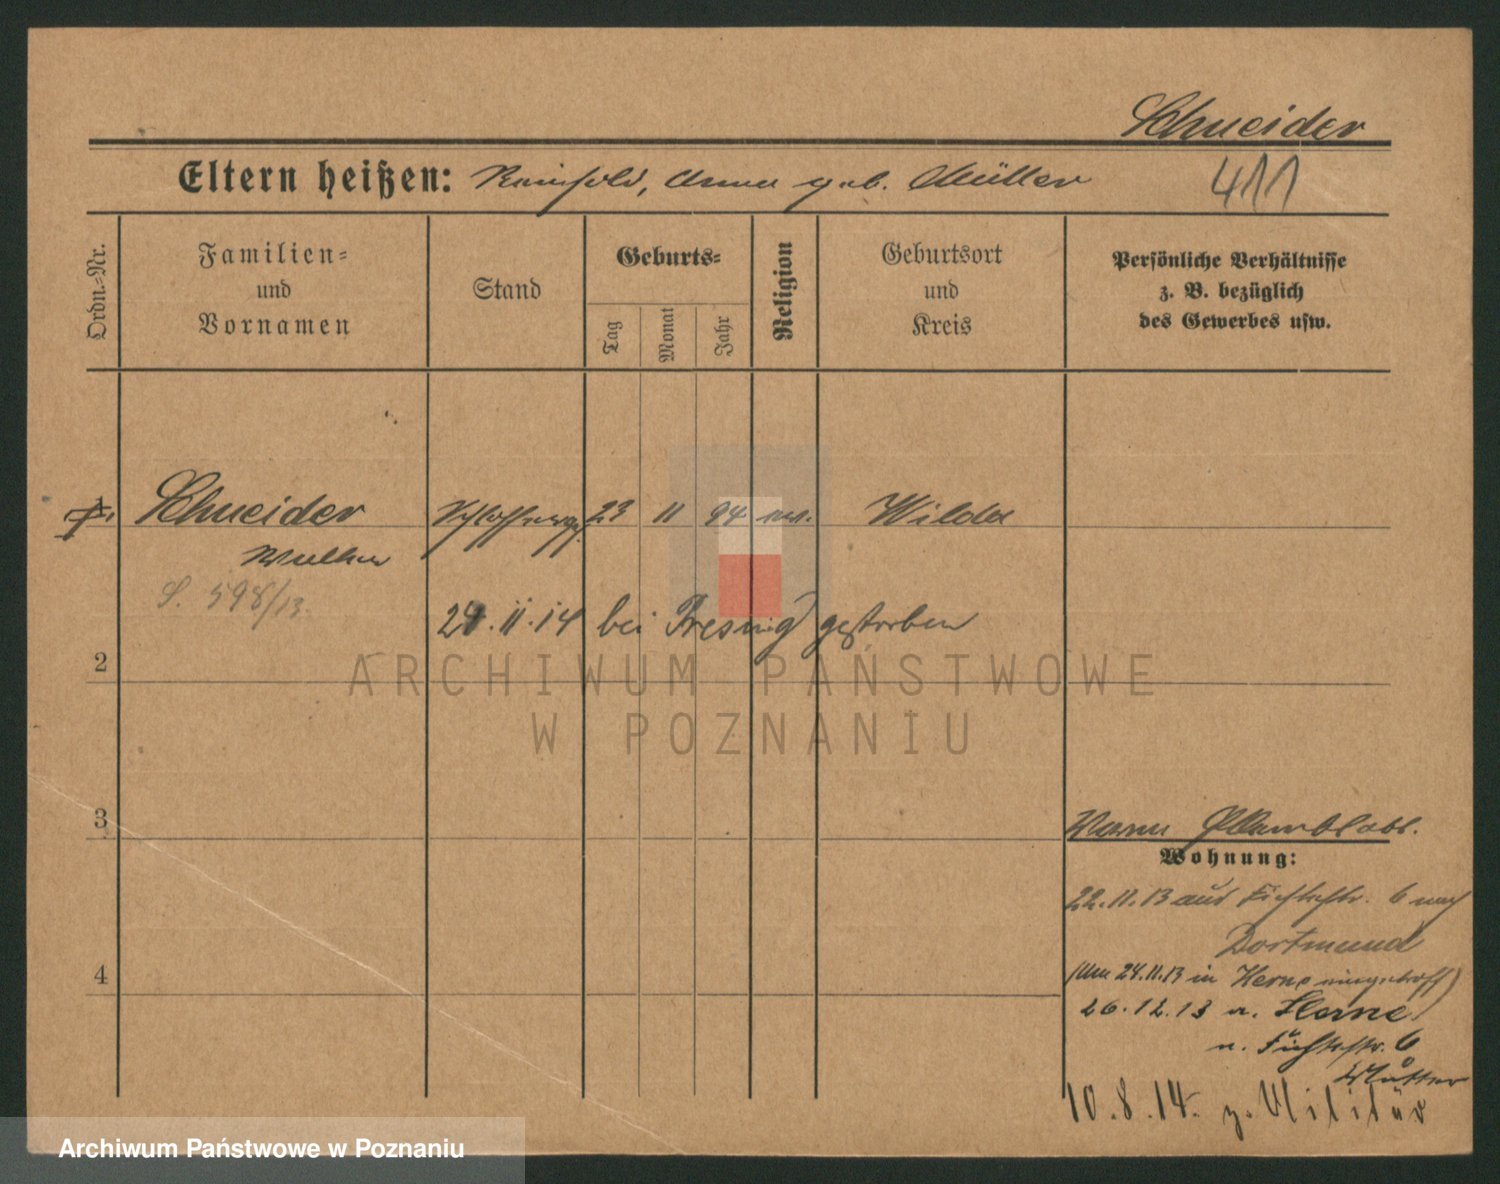 Schneider
Eltern heißen: Reinhold, Anna geb. Müller 411
Ordn.-Nr.
Familien-
und
Vornamen
Stand
Geburts-
Tag
Monat
Jahr
Religion
Geburtsort
und
Kreis
Persönliche Verhältnisse
z. B. bezüglich
des Gewerbes usw.
1 Schneider 23 11 94 Wilda
S. 598/13.
24.11.14 bei gestorben
2
ARCHIWUM PAŃSTWOWE
W POZNANIU
3
Wohnung:
22.11.13 aus Fichtestr. 6 nach
Dortmund
(Am 24.11.13 in Herne eingetroff)
4
26.12.13 a. Herne
n. Fichtestr. 6
Mutter
10.8.14. z. Militär
Archiwum Państwowe w Poznaniu